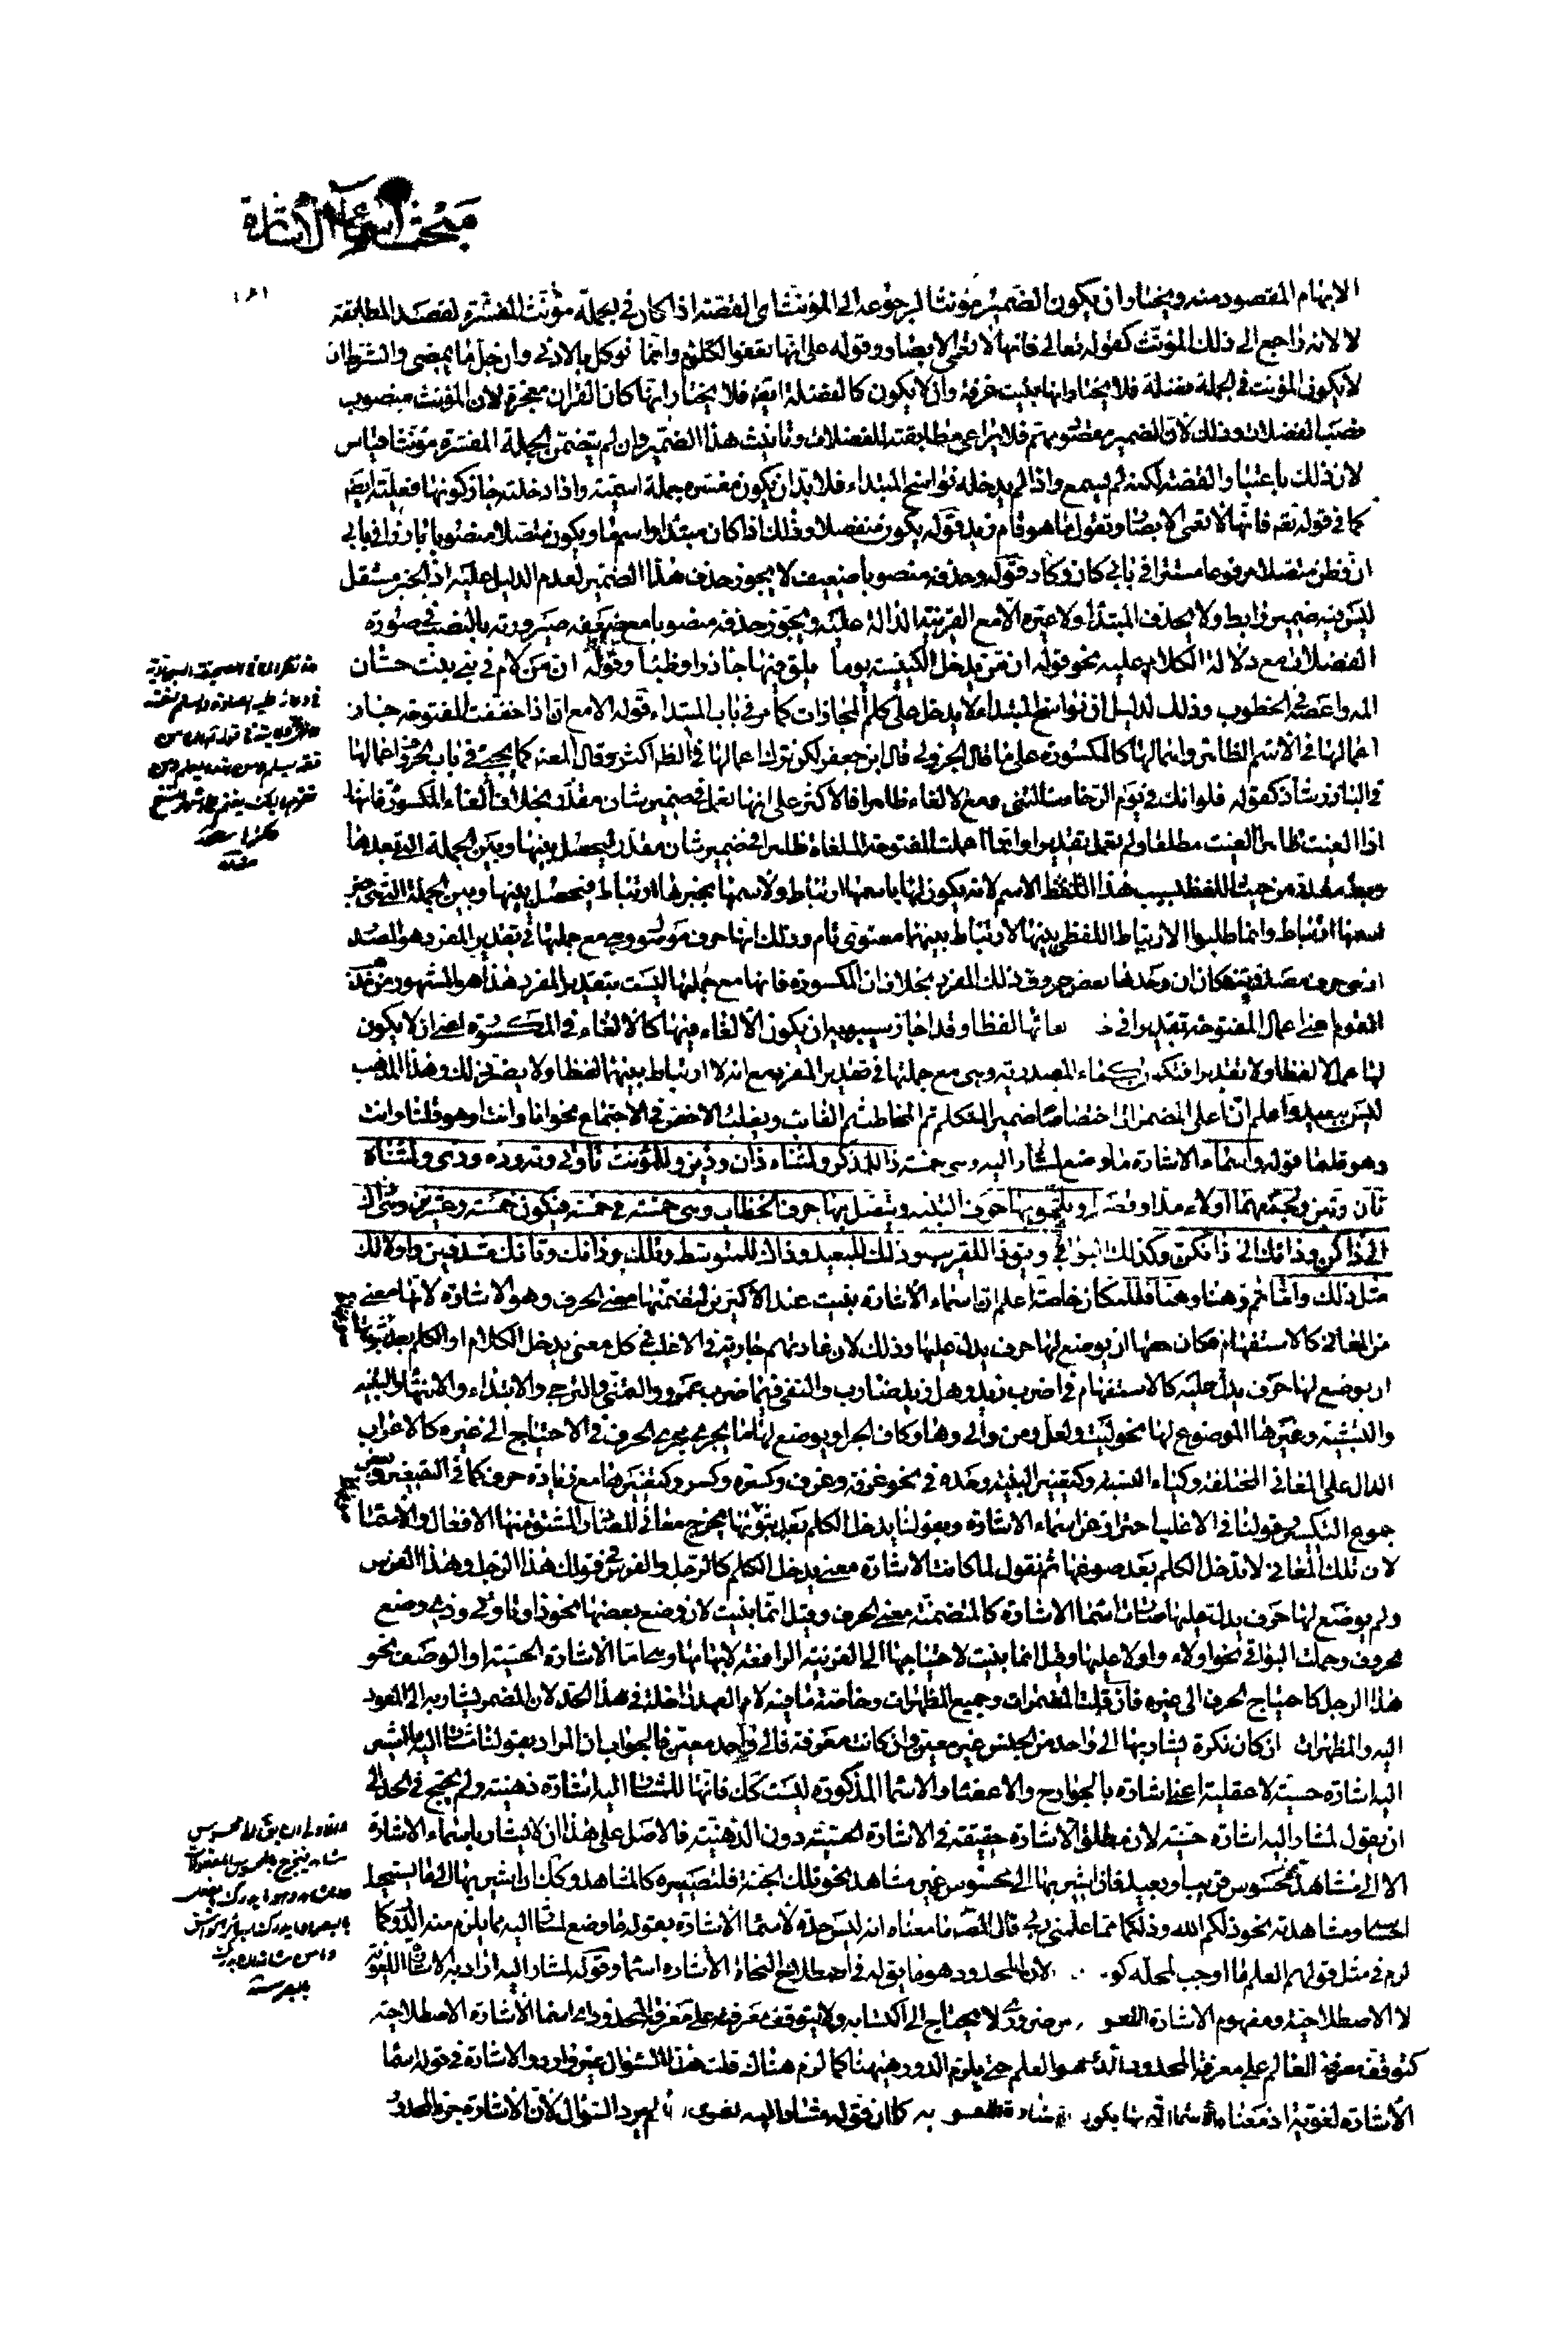 مبحث اسماء الاشارة
١٦١
الابهام المقصود منه ويختار ان يكون الضمير مؤنثا لرجوعه الى المؤنث اى القصة اذا كان فى الجملة مؤنث المفسرة لقصد المطابقة
لا لانه راجع الى ذلك المؤنث كقوله تعالى فانها لا تعمى الابصار وقوله على انها تعفو الكلوم وانما نوكل بالادنى وان جل ما يمضى والشرط ان
لا يكون المؤنث فى الجملة فضلة فلا يختار انها بنيت غرفة وان لا يكون كالفضلة ايضا فلا يختار انها كان القران معجزة لان المؤنث منصوب
نصب الفضلات وذلك لان الضمير مقصود مهم فلا يراعى مطابقته للفضلات وتانيث هذا الضمير وان لم يتضمن الجملة المفسرة مؤنثا قياس
لان ذلك باعتبار القصة لكنه لم يسمع واذا لم يدخله نواسخ المبتداء فلابد ان يكون مفسره جملة اسمية واذا دخلته جاز كونها فعلية ايضا
كما فى قوله تعم فانها لا تعمى الابصار وتقول ما هو قام زيد قوله يكون منفصلا وذلك اذا كان مبتدا او اسم ما ويكون متصلا منصوبا بارزا فى بابى
ان وظن متصلا مرفوعا مستترا فى بابى كان وكاد قوله وحذفه منصوبا ضعيف لا يجوز حذف هذا الضمير لعدم الدليل عليه اذ الخبر مستقل
ليس فيه ضمير رابط ولا يحذف المبتدا ولا غيره الا مع القرينة الدالة عليه ويجوز حذفه منصوبا مع ضعفه صيرورته بالنصب فى صورة
الفضلات مع دلالة الكلام عليه نحو قوله ان من يدخل الكنيسة يوما يلق فيها جاذرا وظباء وقوله ان من لام فى بنى بنت حسان
المه واعصه فى الخطوب وذلك لدليل ان نواسخ المبتداء لا يدخل على كلم المجازات كما مر فى باب المبتداء قوله الا مع ان اذا خففت المفتوحة جاز
اعمالها فى الاسم الظاهر واهمالها كالمكسورة على ما قال الجزولى قال ابن جعفر لكن ترك اعمالها فى الظه اكثر وقال المصنف كما يجئ فى باب الحروف اعمالها
فى البارز شاذ كقوله فلو انك فى يوم الرخاء سالتنى ومع الالغاء ظاهرا فالاكثر على انها تعمل فى ضمير شان مقدر بخلاف الغاء المكسورة فانها
اذا الغيت ظاهرا الغيت مطلقا ولم تعمل تقديرا وانما اعملت المفتوحة الملغاة ظاهرا فى ضمير شان مقدر ليحصل بينها وبين الجملة التى بعدها
لان يكون لها باسمها ارتباط ولاسمها بخبرها ارتباط فيحصل بينها وبين الجملة التى هى خبر
اسمها ارتباط وانما طلبوا الارتباط اللفظى بينها لارتباط بينهما معنوى تام وذلك انها حرف موصول وهى مع جملتها فى تقدير المفرد هو المصدر
اذ هى حرف مصدرية فكان ان وحدها بعض حروف ذلك المفرد بخلاف ان المكسورة فانها مع جملتها ليست بتقدير المفرد هذا هو المشهور
القوم اعنى اعمال المفتوحة تقديرا فى الغائها لفظا وقد اجاز سيبويه ان يكون الالغاء فيها كالالغاء فى المكسورة اعنى ان لا يكون
لها عمل لا لفظا ولا تقديرا فتكون المصدرية وهى مع جملتها فى تقدير المفرد مع انه لا ارتباط بينهما لفظا ولا يضر ذلك وهذا المذهب
ليس ببعيد واعلم ان اعلى المضمرات اختصاصا ضمير المتكلم ثم المخاطب ثم الغائب ويغلب الاخص فى الاجتماع نحو انا وانت وهو قلنا وانت
وهو قلتما قوله واسماء الاشارة ما وضع لمشار اليه وهى خمسة ذا للمذكر ولمثناه ذان وذين وللمؤنث تا وتى وته وذه وذى ولمثناه
تان وتين ولجمعهما اولاء مدا وقصرا ويلحق بها حرف التنبيه ويتصل بها حرف الخطاب وهى خمسة فى خمسة فيكون خمسة وعشرين وهى ذاك
الى ذاكن وذانك الى ذانكن وكذلك البواقى ويقال ذا للقريب وذلك للبعيد وذاك للمتوسط وتلك وذانك وتانك مشددتين واولالك
مثل ذلك واما ثم وهنا وهنا فللمكان خاصة اعلم ان اسماء الاشارة بنيت عند الاكثرين لتضمنها معنى الحرف وهو الاشارة لانها معنى
من المعانى كالاستفهام فكان حقها ان يوضع لها حرف يدل عليها وذلك لان عادتهم جارية فى الاغلب فى كل معنى يدخل الكلام او الكلم بعد ثبوتها
ان يوضع لها حرف يدل عليه كالاستفهام فى اضرب زيد وهل زيد ضارب والنفى فى ما ضرب عمرو والتمنى والترجى والابتداء والانتهاء والتنبيه
والتشبيه وغيرها الموضوع لها نحو ليت ولعل ومن والى وها وكاف الجر او يوضع لها ما يجرى مجرى الحرف فى الاحتياج الى غيره كالاعراب
الدال على المعانى المختلفة وكياء النسبة وكتغيير البنية وحده فى نحو غرفة وغرف وكسرة وكسر وكتغييرها مع زيادة حرف كما فى التصغير وبعض
جموع التكسير قولنا فى الاغلب احتراز عن اسماء الاشارة وبقولنا يدخل الكلم بعد ثبوتها يخرج معانى المصادر المشتق منها الافعال والاسماء
لان تلك المعانى لا تدخل الكلم بعد صوغها ثم نقول لما كانت الاشارة معنى يدخل الكلم كالرجل والفرس فى قولك هذا الرجل وهذا الفرس
ولم يوضع لها حرف يدل عليها صارت اسماء الاشارة كالمتضمنة معنى الحرف وقيل انما بنيت لان وضع بعضها نحو ذا وتا وتى وذى وضع
الحروف وحملت البواقى نحو اولاء واولا عليها وقيل انما بنيت لاحتياجها الى القرينة الرافعة لابهامها وهى اما الاشارة الحسية او الوصف نحو
هذا الرجل كاحتياج الحرف الى غيره فان قلت المضمرات وجميع المظهرات وخاصة ما فيه لام العهد داخلة فى هذا الحد لان المضمر يشار به الى المعود
اليه والمظهرات ان كان نكرة يشار بها الى واحد من الجنس غير معين وان كانت معرفة فالى واحد معين فالجواب ان المراد بقولنا مشار اليه ما اشير
اليه اشارة حسية لا عقلية اعنى اشارة بالجوارح والاعضاء والاسماء المذكورة ليست كك فانها للمشار اليه اشارة ذهنية ولم يحتج فى الحد الى
ان يقول لمشار اليه اشارة حسية لان مطلق الاشارة حقيقة فى الاشارة الحسية دون الذهنية فالاصل على هذا ان لا يشار باسماء الاشارة
الا الى مشاهد محسوس قريب او بعيد فان اشير بها الى محسوس غير مشاهد نحو تلك الجنة فلتصييره كالمشاهد وكك ان اشير بها الى ما يستحيل
احساسه ومشاهدته نحو ذلكم الله وذلكما مما علمنى ربى قال المصنف ما معناه انه ليس حده لاسماء الاشارة بقوله ما وضع لمشار اليه مما يلزم منه الدور كما
لزم فى مثل قولهم العلم ما اوجب لمحله لان المحدود هو ما يقوله فى اصطلاح النحاة الاشارة اسماء وقوله لمشار اليه اراد به الاشارة اللغوية
لا الاصطلاحية ومفهوم الاشارة ضرورى لا يحتاج الى اكتسابه ولا يتوقف معرفته على معرفة المحدود اى اسماء الاشارة الاصطلاحية
كتوقف معرفة العالم على معرفة المحدود الذى هو العلم حتى يلزم الدور ههنا كما لزم هناك قلت هذا السؤال غير وارد والاشارة فى قوله اسماء
الاشارة لغوية اذ معناه الاسماء التى بها يكون كما ان قوله مشار اليه لم يرد السؤال لان الاشارة جزء المحدود